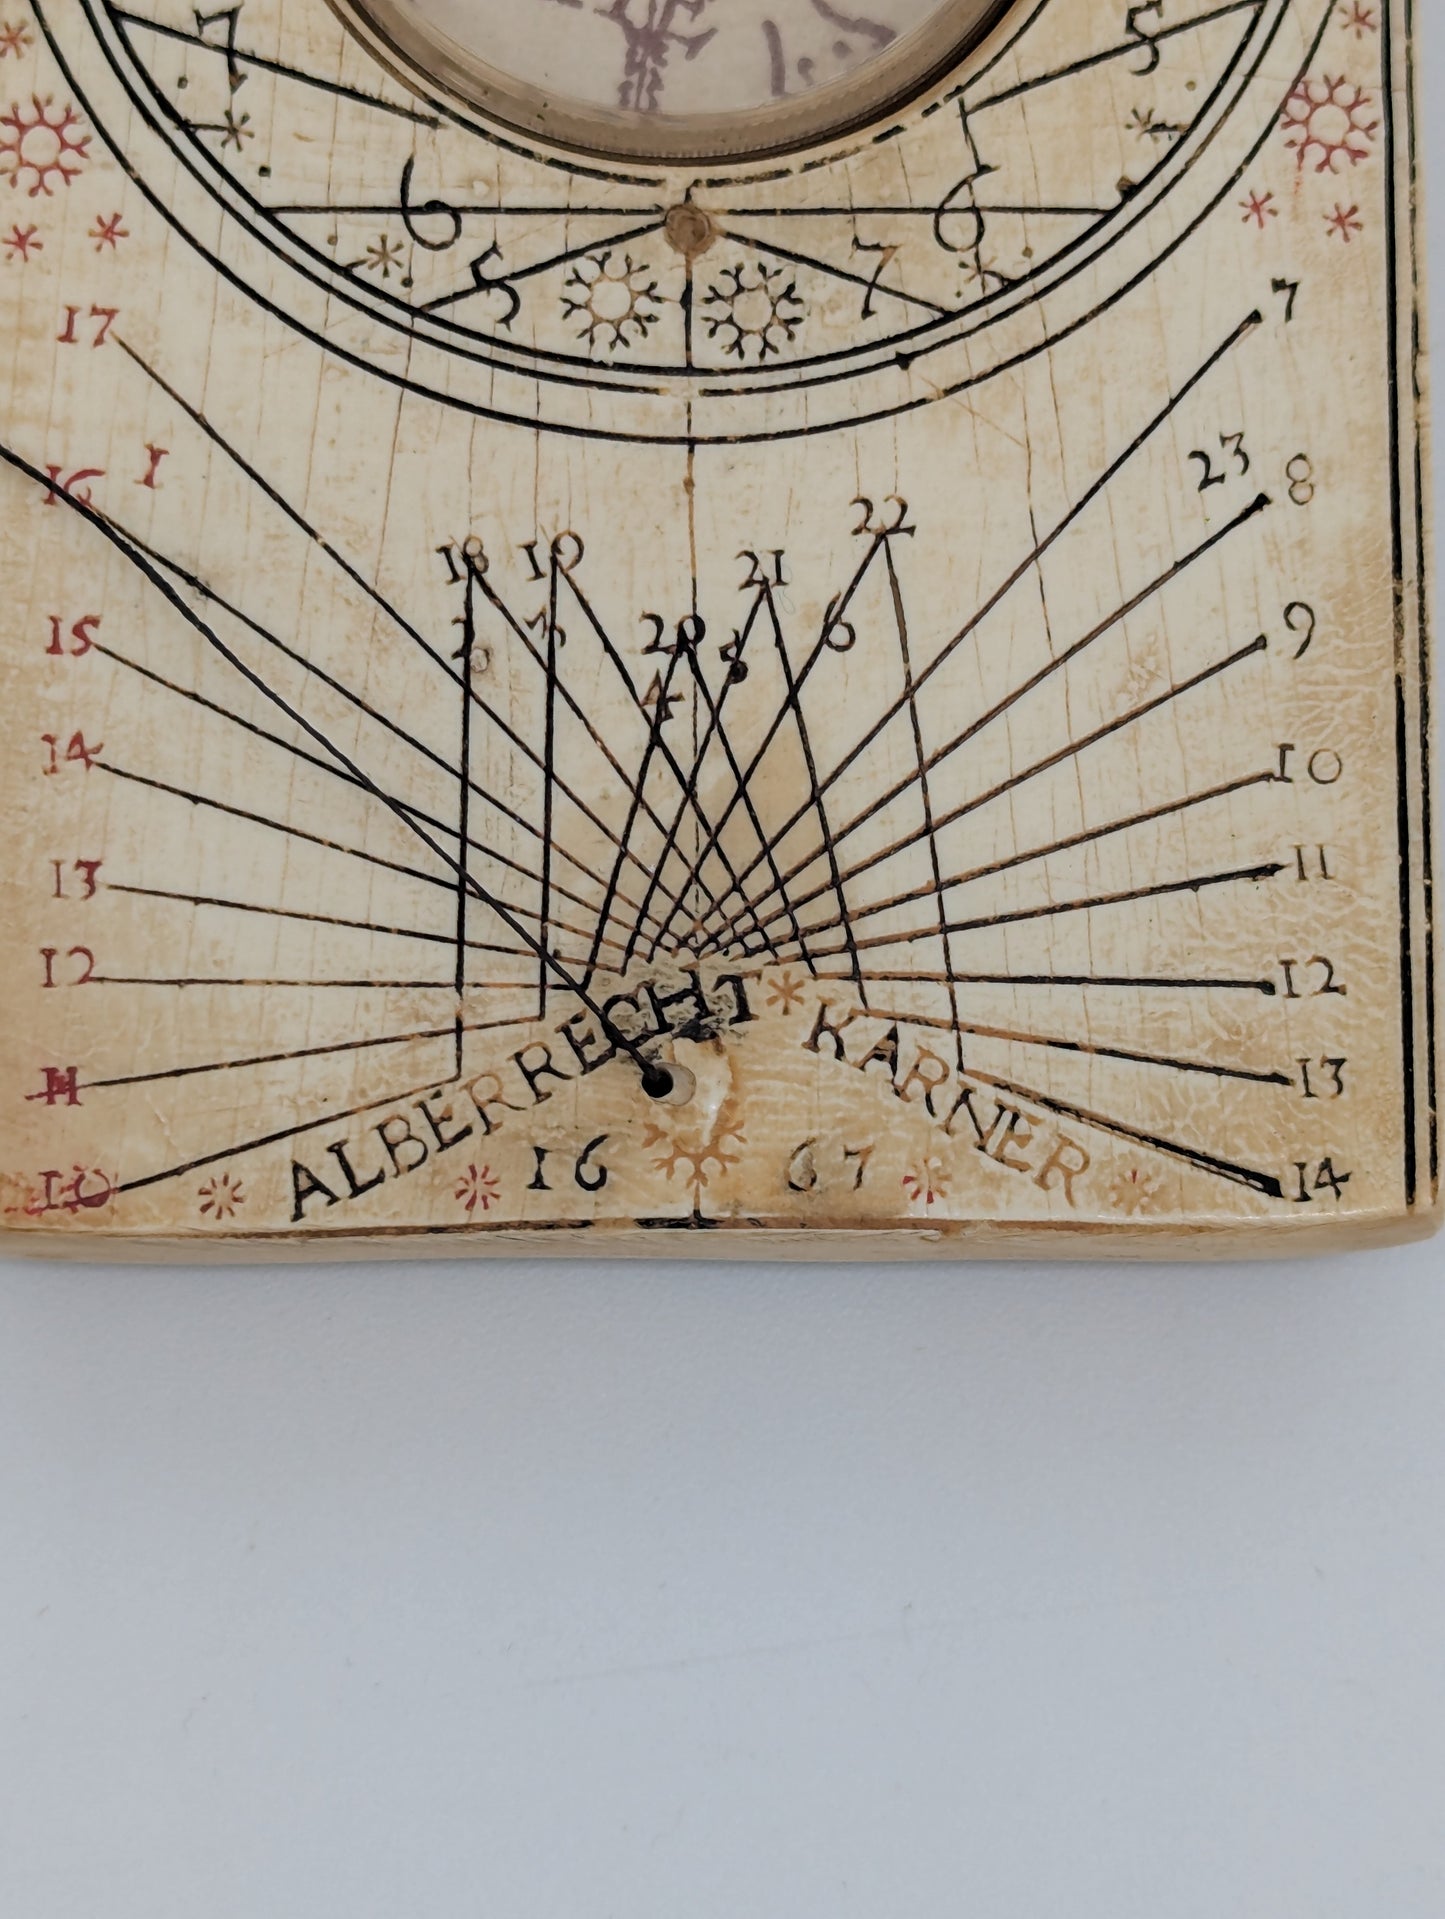 7 5
6 6
5 7
17 7
16 1 23 8
18 19 20 21 22
2 3 4 5 6
15 9
14 10
13 11
12 12
11 13
10 14
ALBERRECHT * KARNER
16 67